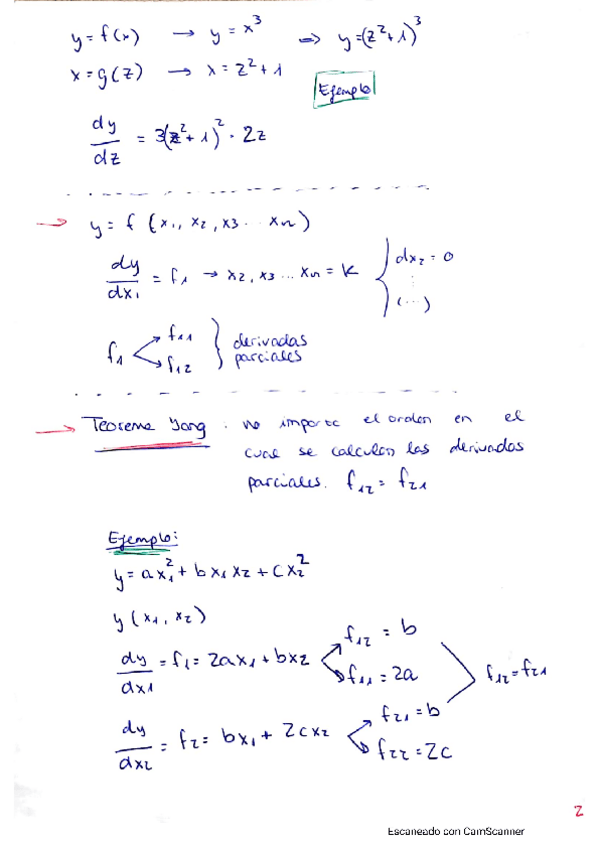 y = f(x) → y = x³ ⇒ y = (z²+1)³
x = g(z) → x = z²+1
Ejemplo
dy/dz = 3(z²+1)² · 2z
→ y = f (x₁, x₂, x₃ ... xn)
dy/dx₁ = f₁ → x₂, x₃ ... xn = K } dx₂ = 0
⋮
(...)
f₁ < f₁₁ f₁₂ } derivadas parciales
→ Teorema Yong : no importa el orden en el
cual se calculan las derivadas
parciales. f₁₂ = f₂₁
Ejemplo:
y = ax₁² + bx₁x₂ + cx₂²
y (x₁, x₂)
dy/dx₁ = f₁ = 2ax₁ + bx₂
f₁₂ = b
f₁₁ = 2a
f₁₂ = f₂₁
dy/dx₂ = f₂ = bx₁ + 2cx₂
f₂₁ = b
f₂₂ = 2c
2
Escaneado con CamScanner